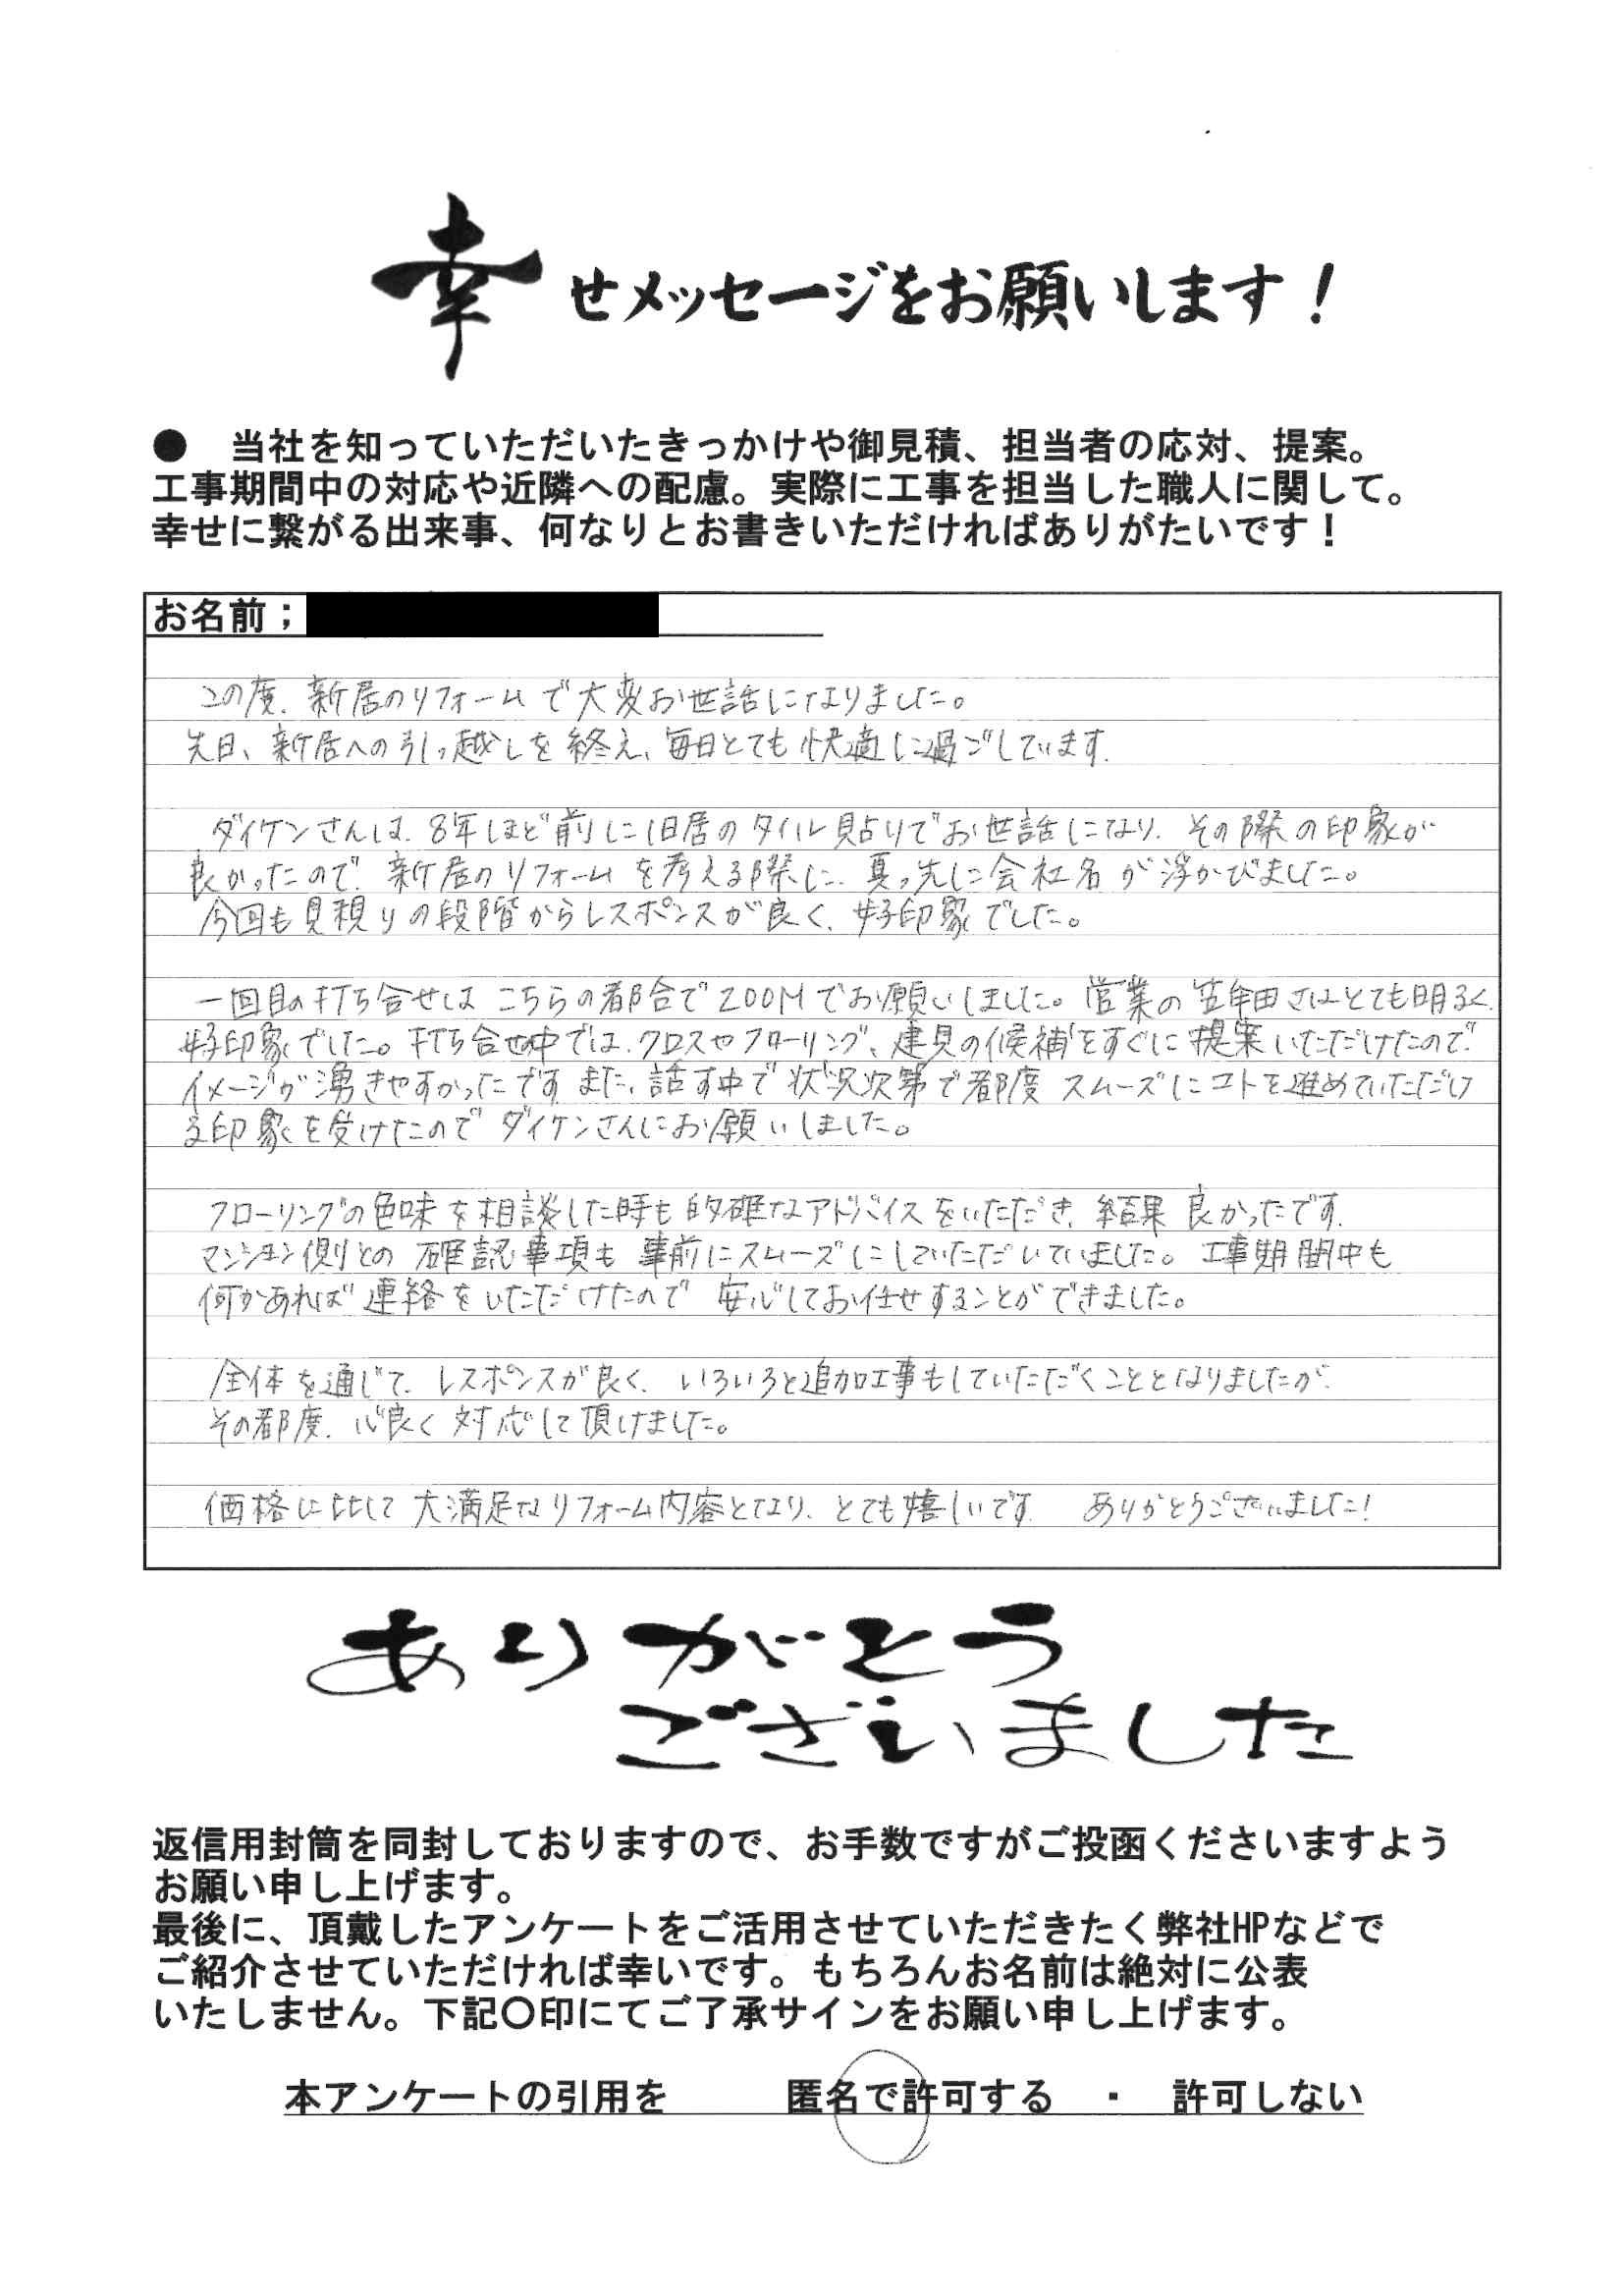 幸せメッセージをお願いします！
● 当社を知っていただいたきっかけや御見積、担当者の応対、提案。
工事期間中の対応や近隣への配慮。実際に工事を担当した職人に関して。
幸せに繋がる出来事、何なりとお書きいただければありがたいです！
お名前；
この度、新居のリフォームで大変お世話になりました。
先日、新居への引っ越しを終え、毎日とても快適に過ごしています。
ダイケンさんは、8年ほど前に旧居のタイル貼りでお世話になり、その際の印象が
良かったので、新居のリフォームを考える際に、真っ先に会社名が浮かびました。
今回も見積りの段階からレスポンスが良く、好印象でした。
一回目の打ち合せは こちらの都合でZOOMでお願いしました。営業の 田さんはとても明るく、
好印象でした。打ち合せ中では、クロスやフローリング、建具の候補をすぐに提案いただけたので、
イメージが湧きやすかったです。また、話す中で状況次第で都度 スムーズにコトを進めていただけ
る印象を受けたのでダイケンさんにお願いしました。
フローリングの色味を相談した時も的確なアドバイスをいただき、結果 良かったです。
マンション側との確認事項も事前にスムーズにしていただいていました。工事期間中も
何かあれば連絡をいただけたので 安心してお任せすることができました。
全体を通じて、レスポンスが良く、いろいろと追加工事もしていただくこととなりましたが、
その都度、心良く対応して頂けました。
価格に比して大満足なリフォーム内容となり、とても嬉しいです。 ありがとうございました！
ありがとう
ございました
返信用封筒を同封しておりますので、お手数ですがご投函くださいますよう
お願い申し上げます。
最後に、頂戴したアンケートをご活用させていただきたく弊社HPなどで
ご紹介させていただければ幸いです。もちろんお名前は絶対に公表
いたしません。下記〇印にてご了承サインをお願い申し上げます。
本アンケートの引用を 匿名で許可する ・ 許可しない